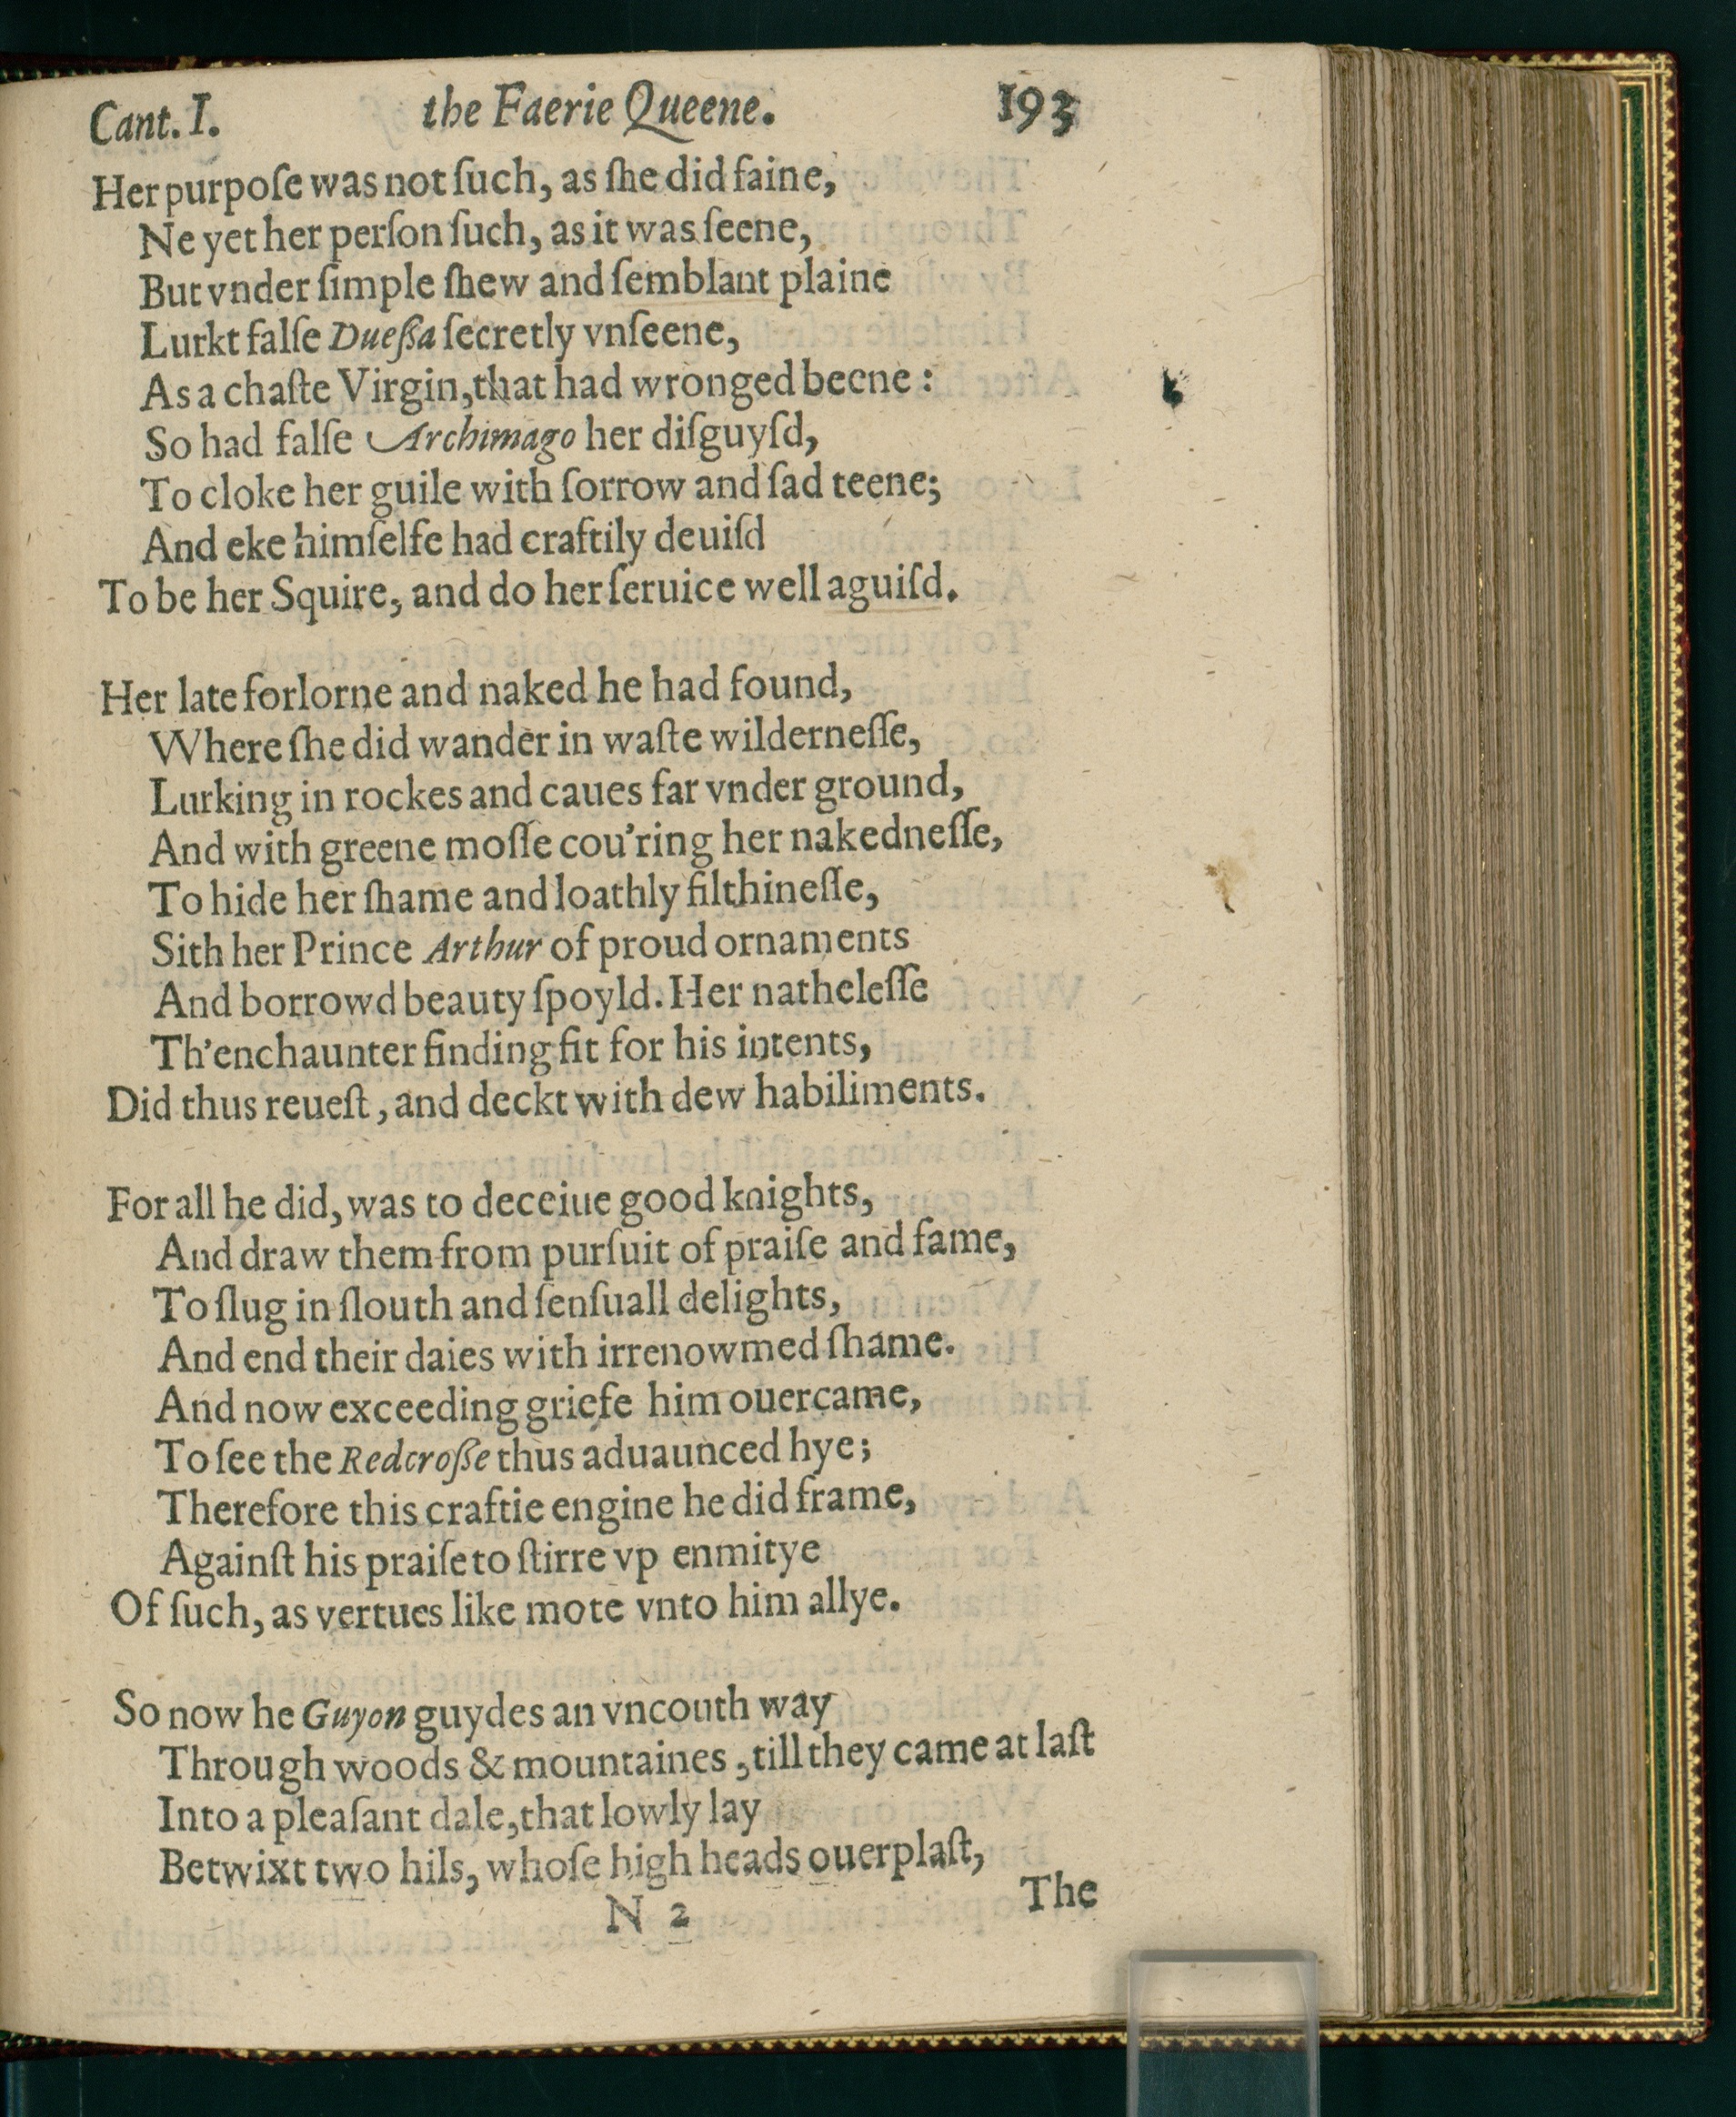 Cant. I. the Faerie Queene. 193
Her purpoſe was not ſuch, as ſhe did faine,
Ne yet her perſon ſuch, as it was ſeene,
But vnder ſimple ſhew and ſemblant plaine
Lurkt falſe Dueſſa ſecretly vnſeene,
As a chaſte Virgin, that had wronged beene:
So had falſe Archimago her diſguyſd,
To cloke her guile with ſorrow and ſad teene;
And eke himſelfe had craftily deuiſd
To be her Squire, and do her ſeruice well aguiſd.
Her late forlorne and naked he had found,
Where ſhe did wander in waſte wilderneſſe,
Lurking in rockes and caues far vnder ground,
And with greene moſſe cou'ring her nakedneſſe,
To hide her ſhame and loathly filthineſſe,
Sith her Prince Arthur of proud ornaments
And borrowd beauty ſpoyld. Her natheleſſe
Th'enchaunter finding fit for his intents,
Did thus reueſt, and deckt with dew habiliments.
For all he did, was to deceiue good knights,
And draw them from purſuit of praiſe and fame,
To ſlug in ſlouth and ſenſuall delights,
And end their daies with irrenowmed ſhame.
And now exceeding griefe him ouercame,
To ſee the Redcroſſe thus aduaunced hye;
Therefore this craftie engine he did frame,
Againſt his praiſe to ſtirre vp enmitye
Of ſuch, as vertues like mote vnto him allye.
So now he Guyon guydes an vncouth way
Through woods & mountaines, till they came at laſt
Into a pleaſant dale, that lowly lay
Betwixt two hils, whoſe high heads ouerplaſt,
N 2 The